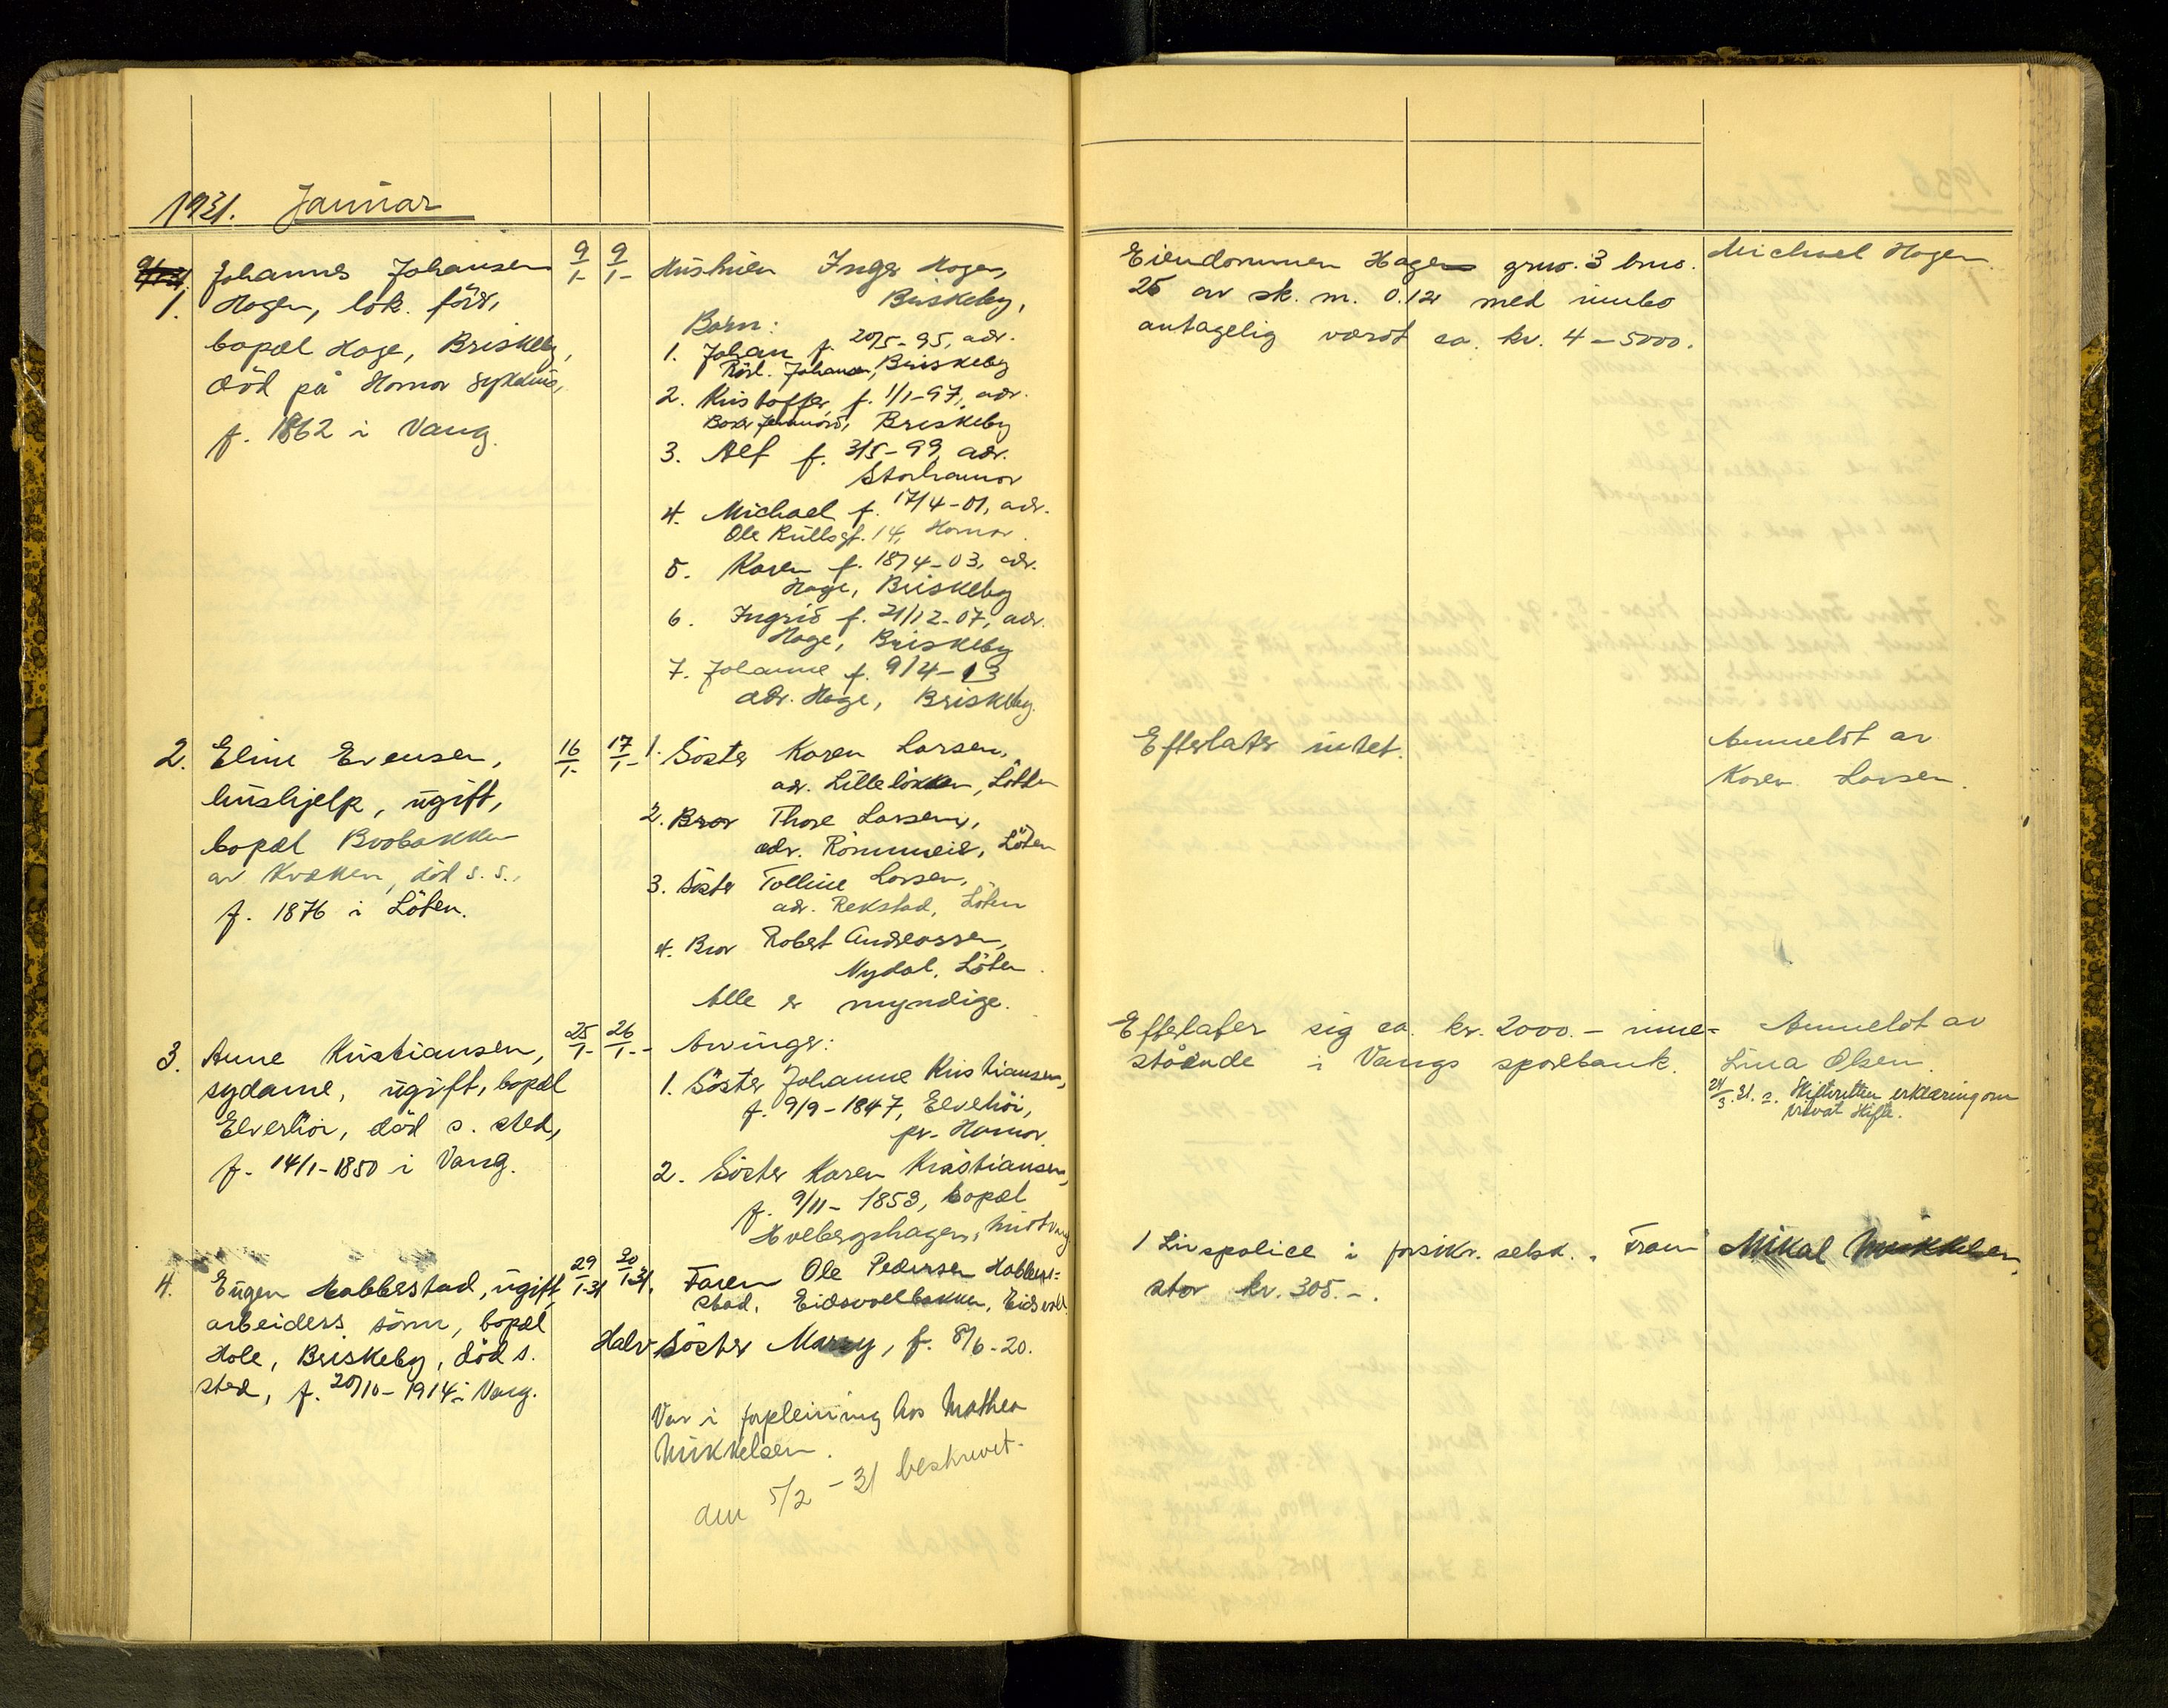 1931. Januar
1. Johannes Johansen
Hagen, lok. förer,
bopæl Hage, Briskeby,
död på Hamar sykehus,
f. 1862 i Vang.
9/1- 9/1-
Hustruen Inger Hagen,
Briskeby,
Barn:
1. Johan f. 20/5-95, adr.
Johansen, Briskeby
2. Kristoffer f. 1/1-97, adr.
Briskeby
3. Alf f. 3/5-99, adr.
Storhamar
4. Michael f. 17/4-01, adr.
Ole Rullsgt. 14, Hamar.
5. Karen f. 18/4-03, adr.
Hage, Briskeby
6. Ingrid f. 21/12-07, adr.
Hage, Briskeby
7. Johanne f. 9/4-13
adr. Hage, Briskeby.
Eiendommen Hagen grno. 3 brno.
25 av sk. m. 0.12 med innbo
antagelig værdt ca. kr. 4-5000.
Michael Hagen.
2. Eline Evensen,
hushjelp, ugift,
bopæl Brobakken
av Kvæken, död s. s.,
f. 1876 i Löten.
16/1- 17/1-
1. Söster Karen Larsen,
adr. Lillelökken, Löten
2. Bror Thore Larsen,
adr. Römmeie, Löten
3. Söster Tolline Larsen,
adr. Rekstad, Löten
4. Bror Robert Andreassen,
Nydal, Löten.
Alle er myndige.
Efterlater intet.
Anmeldt av
Karen Larsen.
3. Anne Kristiansen,
sydame, ugift, bopæl
Elverhöi, död s. sted,
f. 14/1-1850 i Vang.
25/1- 26/1-
Arvinger:
1. Söster Johanne Kristiansen,
f. 9/9-1847, Elvehöi,
pr. Hamar.
2. Söster Karen Kristiansen,
f. 9/11-1853, bopæl
Holbergshagen, Midtvang
Efterlater sig ca. kr. 2000.- inne=
stående i Vangs sparebank.
Anmeldt av
Lina Olsen.
24/3.31. s. Skifteretten erklæring om
privat skifte.
4. Eugen Habbestad, ugift,
arbeiders sönn, bopæl
Hole, Briskeby, död s.
sted, f. 20/10-1914 i Vang.
29/1-31 30/1-31.
Faren Ole Pedersen Habbe=
stad, Eidsvollbakken, Eidsvoll.
Halv söster Marry, f. 8/6-20.
Var i forpleining hos Mathea
Mikkelsen.
den 5/2-31 beskrevet.
1 Livspolice i forsikr. selsk. "Fram"
stor kr. 305.-.
Mikal Mikkelsen,